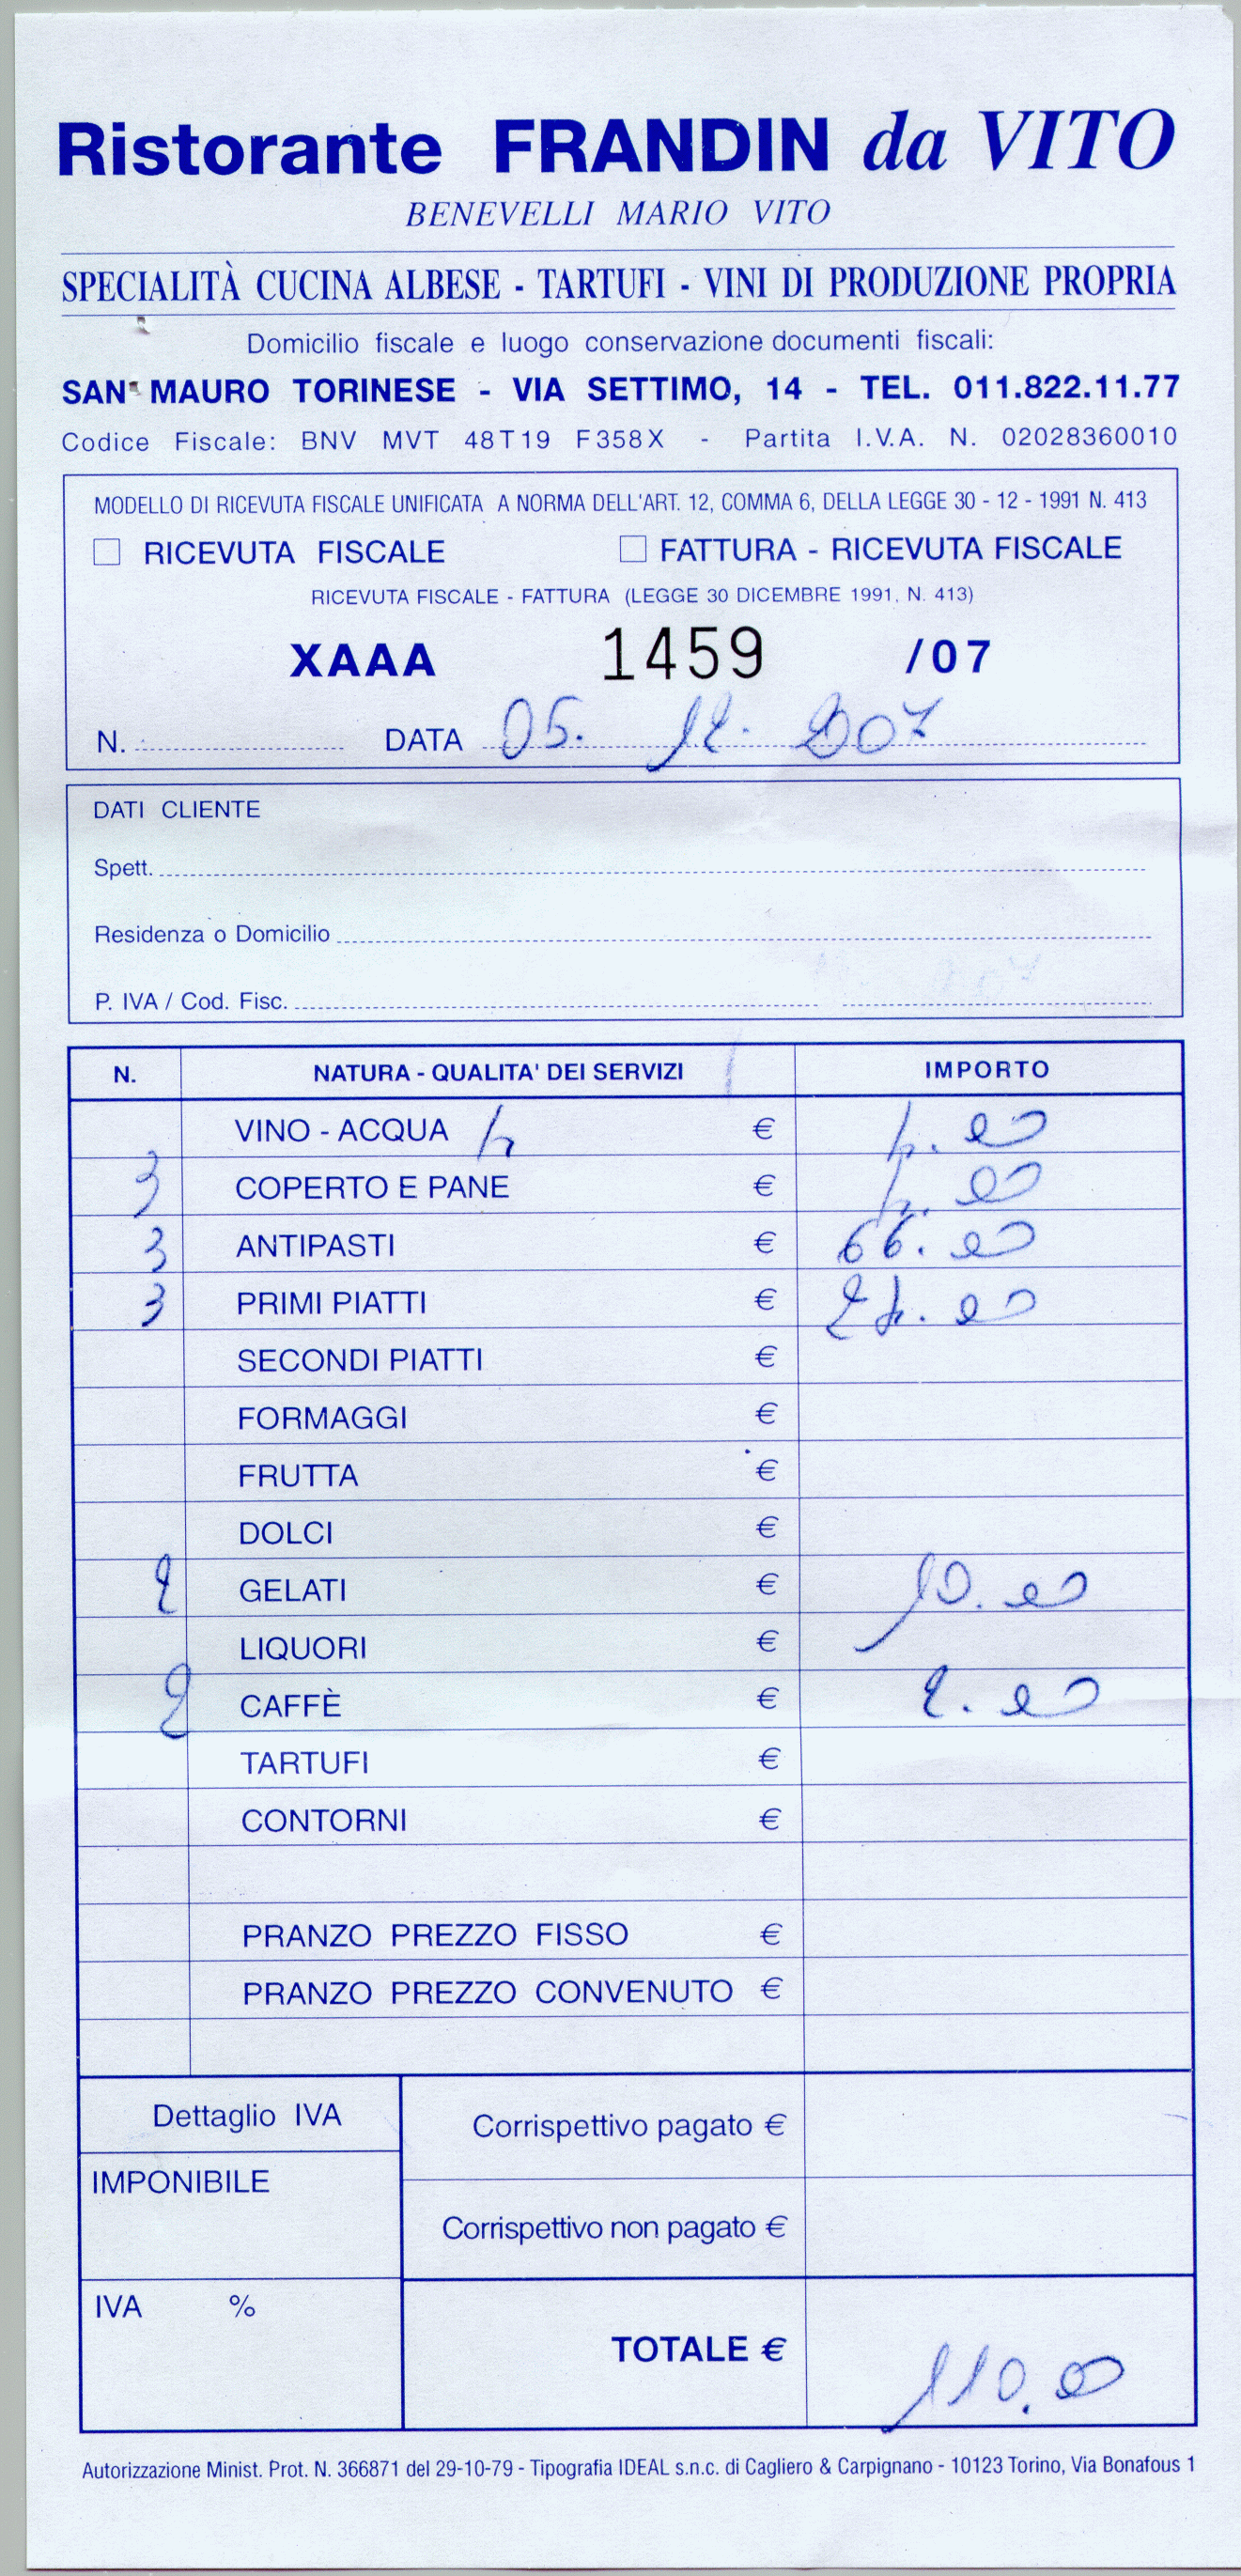 Ristorante FRANDIN da VITO
BENEVELLI MARIO VITO
SPECIALITÀ CUCINA ALBESE - TARTUFI - VINI DI PRODUZIONE PROPRIA
Domicilio fiscale e luogo conservazione documenti fiscali:
SAN MAURO TORINESE - VIA SETTIMO, 14 - TEL. 011.822.11.77
Codice Fiscale: BNV MVT 48T19 F358X - Partita I.V.A. N. 02028360010
MODELLO DI RICEVUTA FISCALE UNIFICATA A NORMA DELL'ART. 12, COMMA 6, DELLA LEGGE 30 - 12 - 1991 N. 413
RICEVUTA FISCALE FATTURA - RICEVUTA FISCALE
RICEVUTA FISCALE - FATTURA (LEGGE 30 DICEMBRE 1991, N. 413)
XAAA 1459 /07
N. DATA 05. 12. 2007
DATI CLIENTE
Spett.
Residenza o Domicilio
P. IVA / Cod. Fisc.
N. NATURA - QUALITA' DEI SERVIZI IMPORTO
VINO - ACQUA €
3 COPERTO E PANE €
3 ANTIPASTI € 66.00
3 PRIMI PIATTI €
SECONDI PIATTI €
FORMAGGI €
FRUTTA €
DOLCI €
2 GELATI € 10.00
LIQUORI €
2 CAFFÈ € 2.00
TARTUFI €
CONTORNI €
PRANZO PREZZO FISSO €
PRANZO PREZZO CONVENUTO €
Dettaglio IVA
Corrispettivo pagato €
IMPONIBILE
Corrispettivo non pagato €
IVA %
TOTALE € 110.00
Autorizzazione Minist. Prot. N. 366871 del 29-10-79 - Tipografia IDEAL s.n.c. di Cagliero & Carpignano - 10123 Torino, Via Bonafous 1